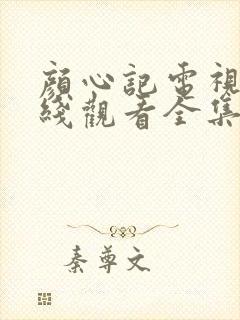 顔心記電視
綫觀看全集
秦尊文